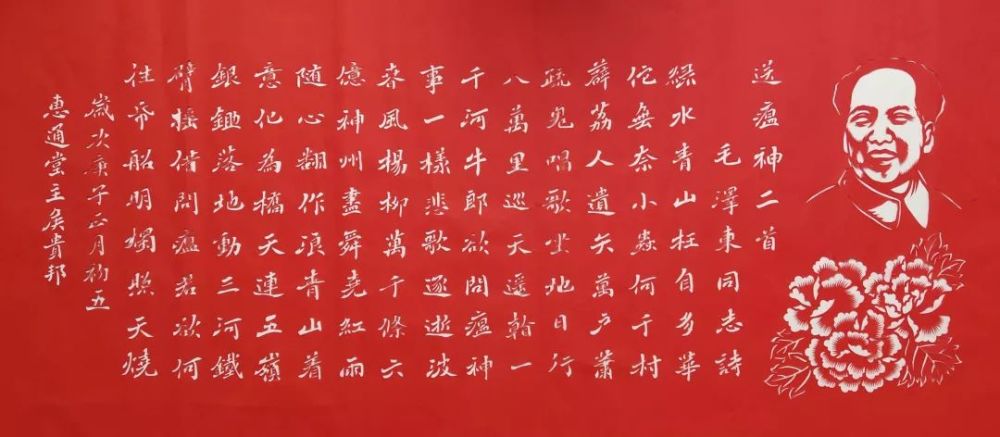 送瘟神二首
毛澤東同志詩
綠水青山枉自多華
佗無奈小蟲何千村
薜荔人遺矢萬戶蕭
疏鬼唱歌坐地日行
八萬里巡天遥看一
千河牛郎欲問瘟神
事一樣悲歌逐逝波
春風楊柳萬千條六
億神州盡舜堯紅雨
随心翻作浪青山着
意化為橋天連五嶺
銀鋤落地動三河鐵
臂摇借問瘟君欲何
往帋船明燭照天燒
歲次庚子正月初五
惠通堂主侯貴邦